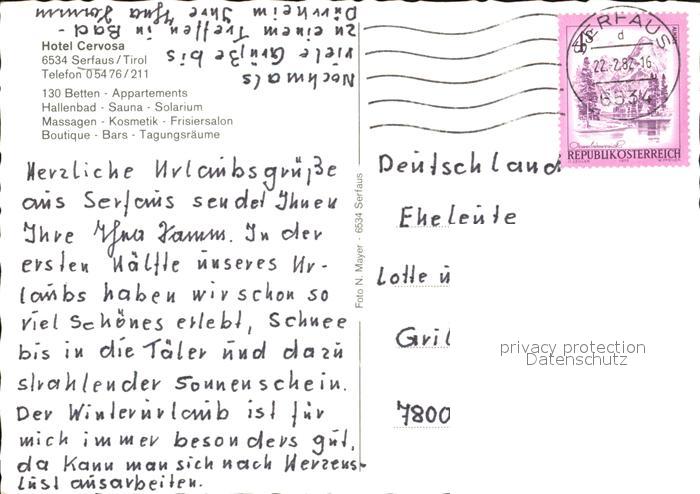 Nochmals
viele Grüße bis
zu einem Treffen in Bad-
Dürrheim Ihre Yna Hamm
Hotel Cervosa
6534 Serfaus/Tirol
Telefon 05476/211
130 Betten - Appartements
Hallenbad - Sauna - Solarium
Massagen - Kosmetik - Frisiersalon
Boutique - Bars - Tagungsräume
Herzliche Urlaubsgrüße
aus Serfaus sendet Ihnen
Ihre Hamm. In der
ersten Hälfte unseres Ur-
laubs haben wir schon so
viel Schönes erlebt, Schnee
bis in die Täler und dazu
strahlender Sonnenschein.
Der Winterurlaub ist für
mich immer besonders gut,
da kann man sich nach Herzens-
lust ausarbeiten.
Foto N. Mayer - 6534 Serfaus
SERFAUS
d
22.-2.82-16
6534
REPUBLIK ÖSTERREICH
Deutschland
Eheleute
Lotte u
Gril
7800
privacy protection
Datenschutz